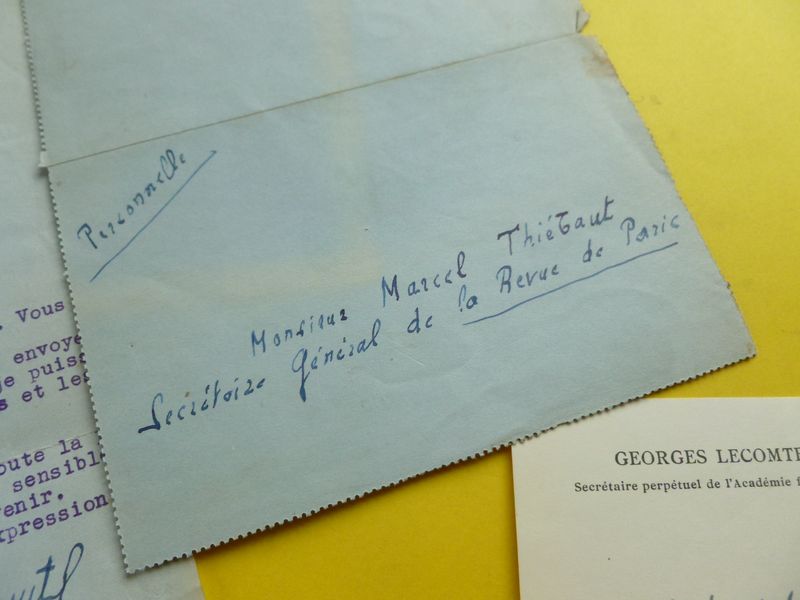 Personnelle
Monsieur Marcel Thiébaut
Secrétaire Général de la Revue de Paris
. Vous
envoye
je puiss
s et les
oute la
sensibl
venir.
xpression
GEORGES LECOMTE
Secrétaire perpétuel de l'Académie f